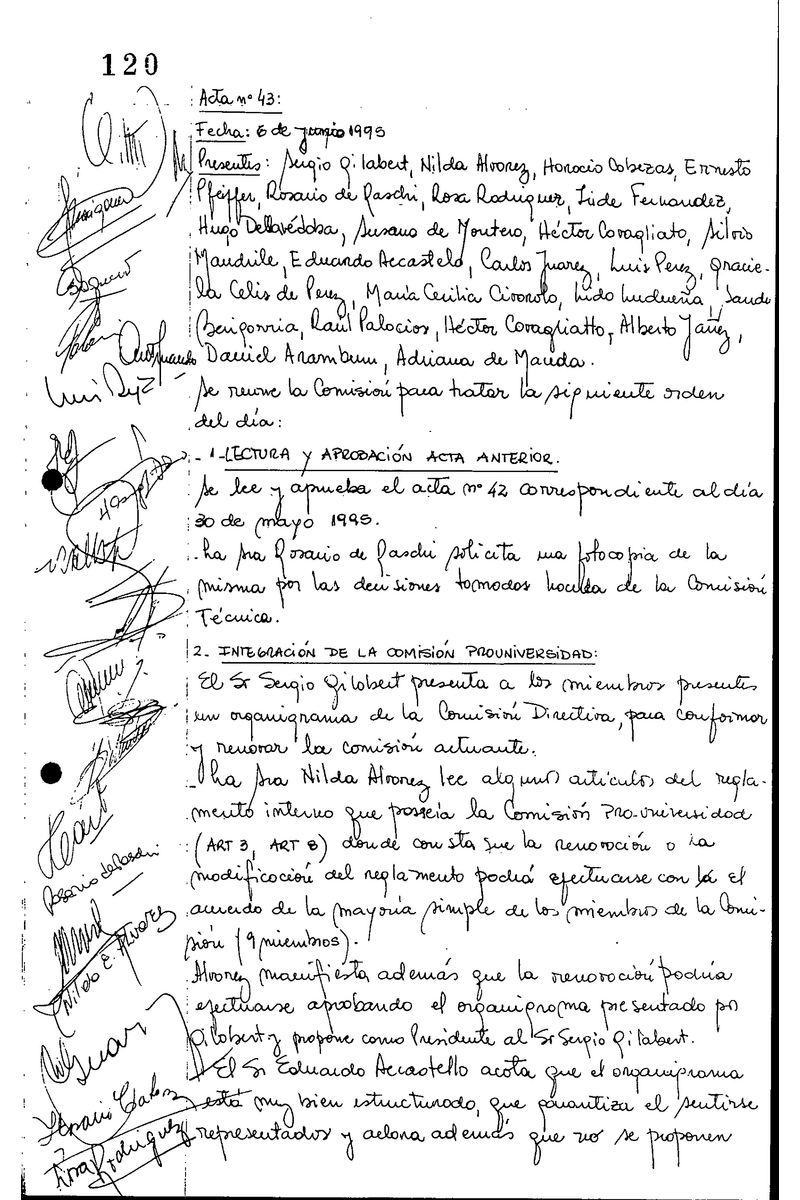 120
Acta nº 43:
Fecha: 6 de junio 1995
Presentes: Sergio Gilabert, Nilda Alvarez, Horacio Cabezas, Ernesto
Pfeiffer, Rosario de Paschi, Rosa Rodriguez, Lide Fernandez,
Hugo Dellavédoba, Susana de Montero, Héctor Covagliato, Silvio
Mandrile, Eduardo Accastelo, Carlos Juarez, Luis Perez, Gracie-
la Celis de Perez, María Cecilia Civorolo, Lido Ludueña,
Raúl Palacios, Héctor Covagliatto, Alberto Yañez,
Daniel Aramburu, Adriana de Manda.
Se reune la Comisión para tratar la siguiente orden
del día:
- 1- LECTURA Y APROBACIÓN ACTA ANTERIOR.
Se lee y aprueba el acta nº 42 correspondiente al día
30 de mayo 1995.
La Sra Rosario de Paschi solicita una fotocopia de la
misma por las decisiones tomadas de la Comisión
Técnica.
2- INTEGRACIÓN DE LA COMISIÓN PROUNIVERSIDAD:
El Sr Sergio Gilabert presenta a los miembros presentes
un organigrama de la Comisión Directiva, para conformar
y renovar la comisión actuante.
La Sra Nilda Alvarez lee algunos artículos del regla-
mento interno que posseia la Comisión PRO-universidad
(ART 3, ART 8) donde consta que la renovación o la
modificación del reglamento podrá efectuarse con el
acuerdo de la mayoría simple de los miembros de la Comi-
sión (9 miembros).
Alvarez manifiesta además que la renovación podría
efectuarse aprobando el organigrama presentado por
Gilabert y propone como Presidente al Sr Sergio Gilabert.
El Sr Eduardo Accastello acota que el organigrama
está muy bien estructurado, que garantiza el sentirse
representados y además que no se proponen
Luis Perez
Rosario de Paschi
Nilda E. Alvarez
Horacio Cabezas
Rosa Rodriguez